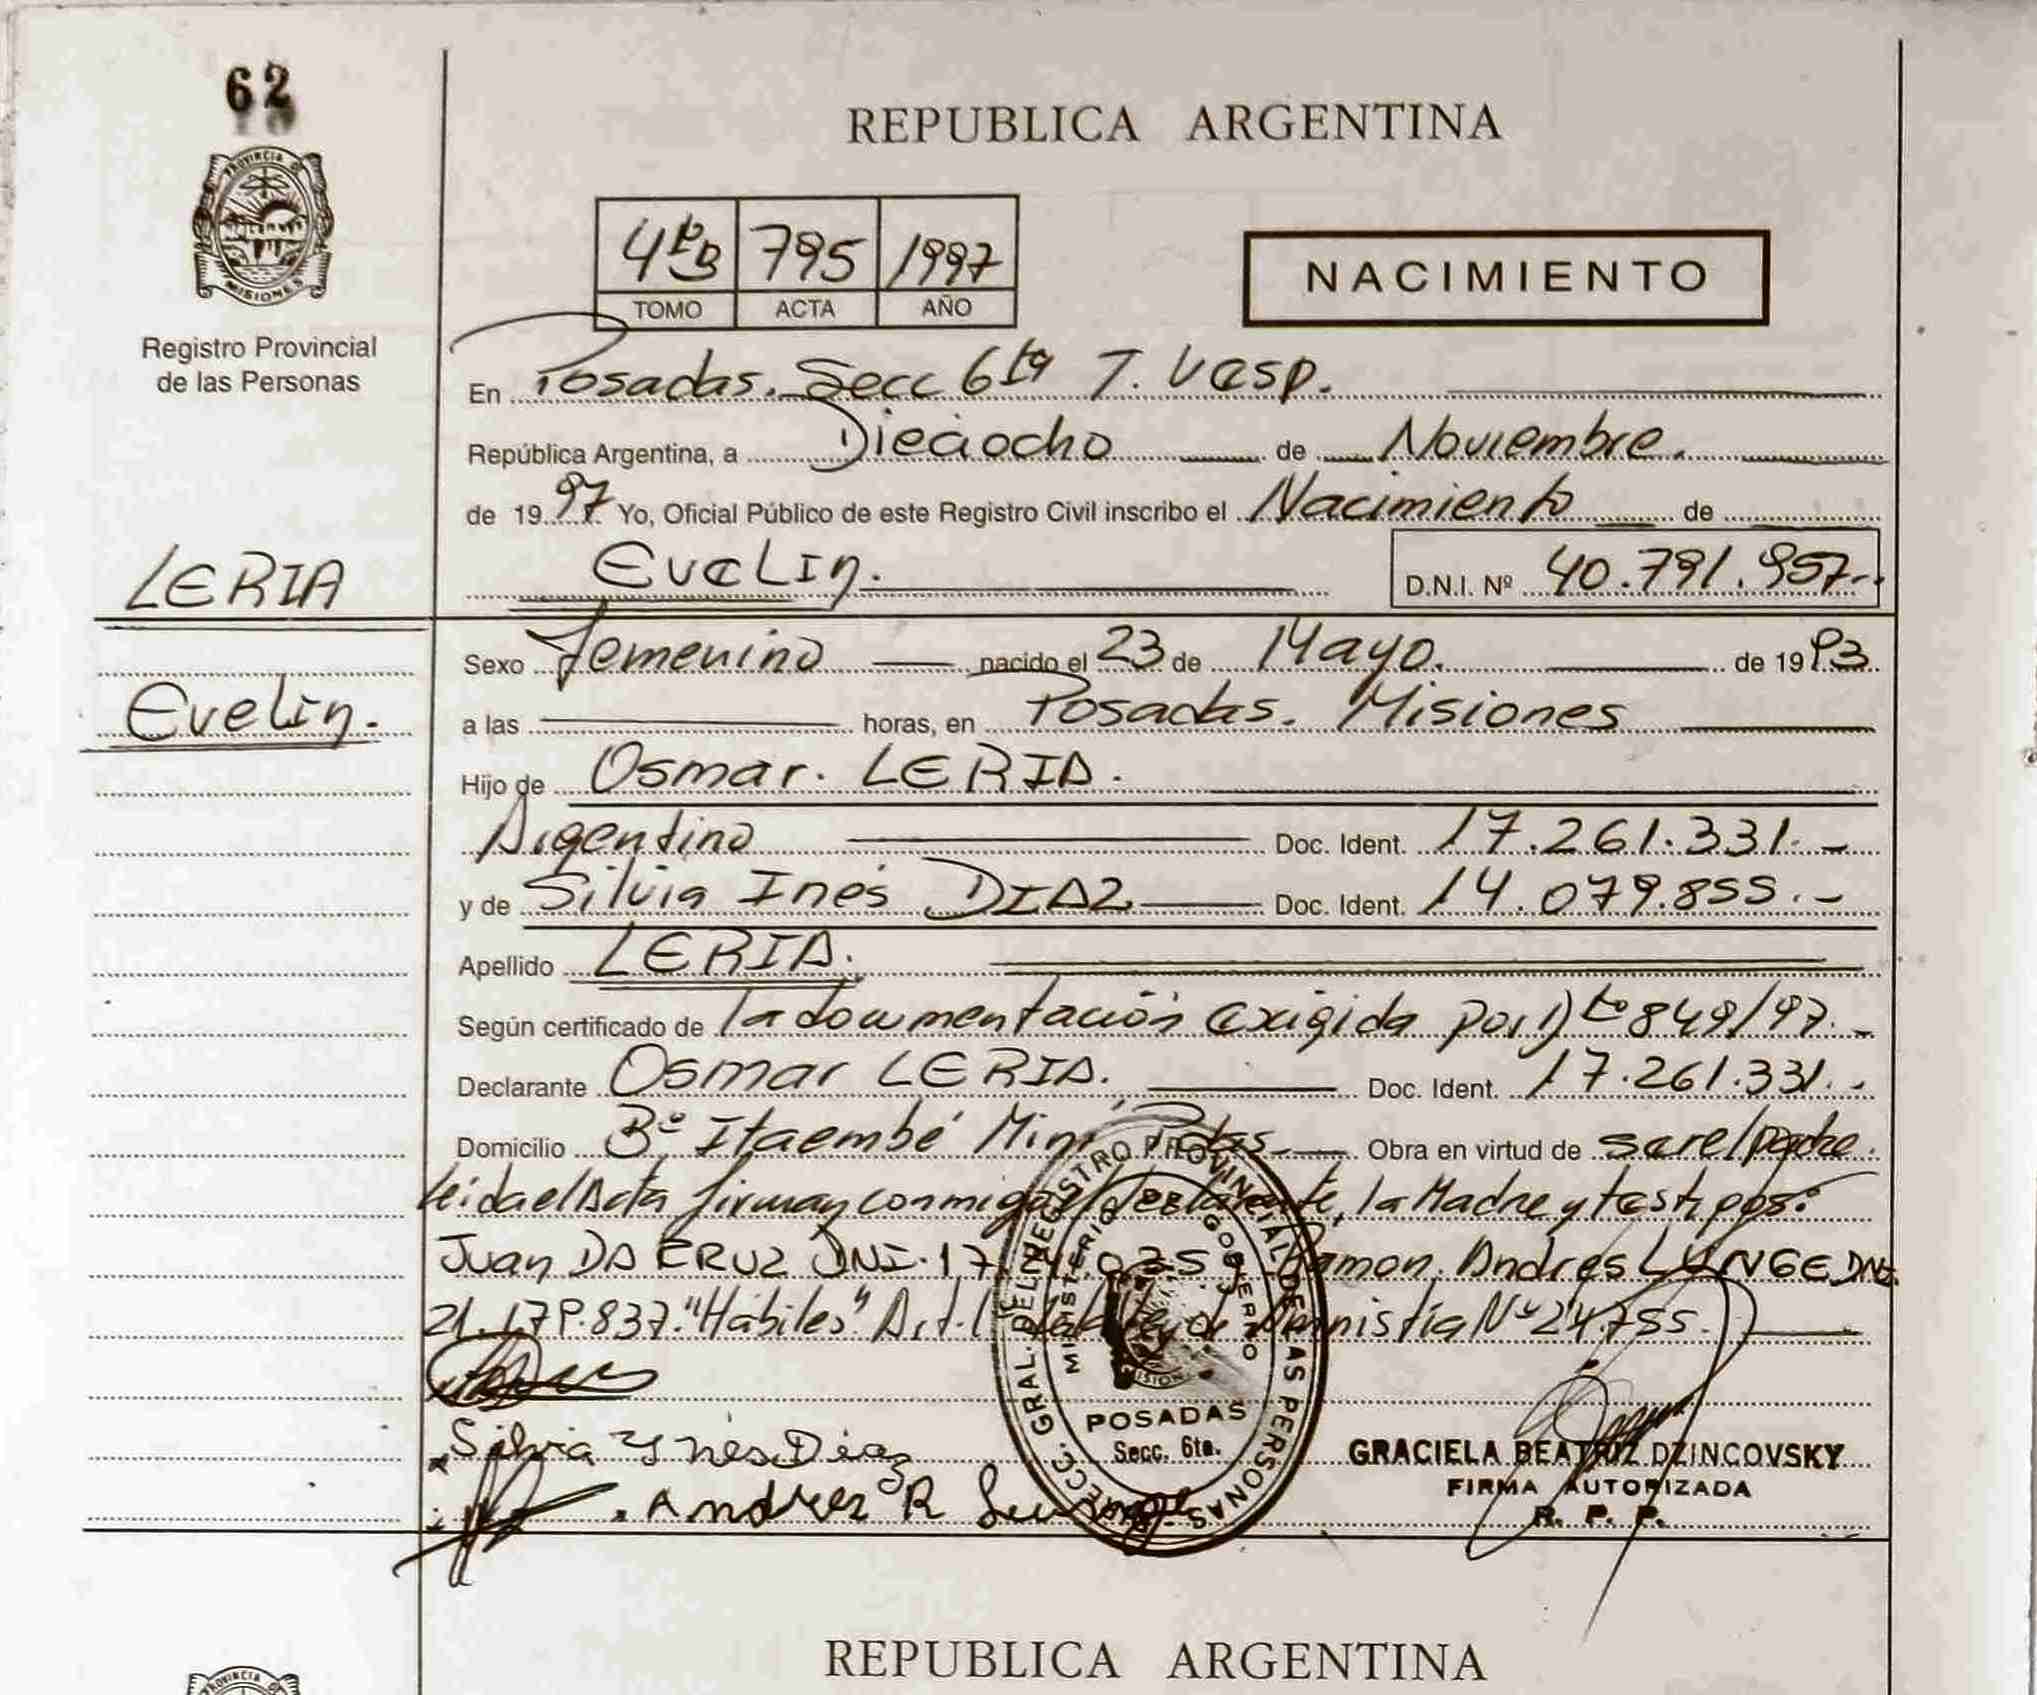 62
PROVINCIA DE
MISIONES
Registro Provincial
de las Personas
LERIA
Evelin.
REPUBLICA ARGENTINA
4to B 795 1997
TOMO ACTA AÑO
NACIMIENTO
En Posadas. Secc 6ta T. Vesp.
República Argentina, a Dieciocho de Noviembre.
de 1997 Yo, Oficial Público de este Registro Civil inscribo el Nacimiento de
Evelin. D.N.I. Nº 40.791.957.-
Sexo Femenino nacido el 23 de Mayo. de 1993
a las horas, en Posadas. Misiones
Hijo de Osmar. LERIA.
Argentino Doc. Ident. 17.261.331.-
y de Silvia Inés DIAZ Doc. Ident. 14.079.855.-
Apellido LERIA.
Según certificado de la documentación exigida por Dto 849/97.-
Declarante Osmar LERIA. Doc. Ident. 17.261.331.-
Domicilio Bº Itaembé Miní, Pdas. Obra en virtud de ser el padre
leida el Acta firman conmigo el declarante, la Madre y testigos:
Juan DA CRUZ DNI. 17. Ramon Andres LUNGE DNI.
21.179.837. "Hábiles" Art. 1 Amnistía Nº 24.755.
Silvia Ynés Díaz
Andres R
DIRECC. GRAL. DEL REGISTRO PROVINCIAL DE LAS PERSONAS
MINISTERIO GOBIERNO
POSADAS
Secc. 6ta.
GRACIELA BEATRIZ DZINCOVSKY
FIRMA AUTORIZADA
R. P. P.
REPUBLICA ARGENTINA
PROVINCIA DE